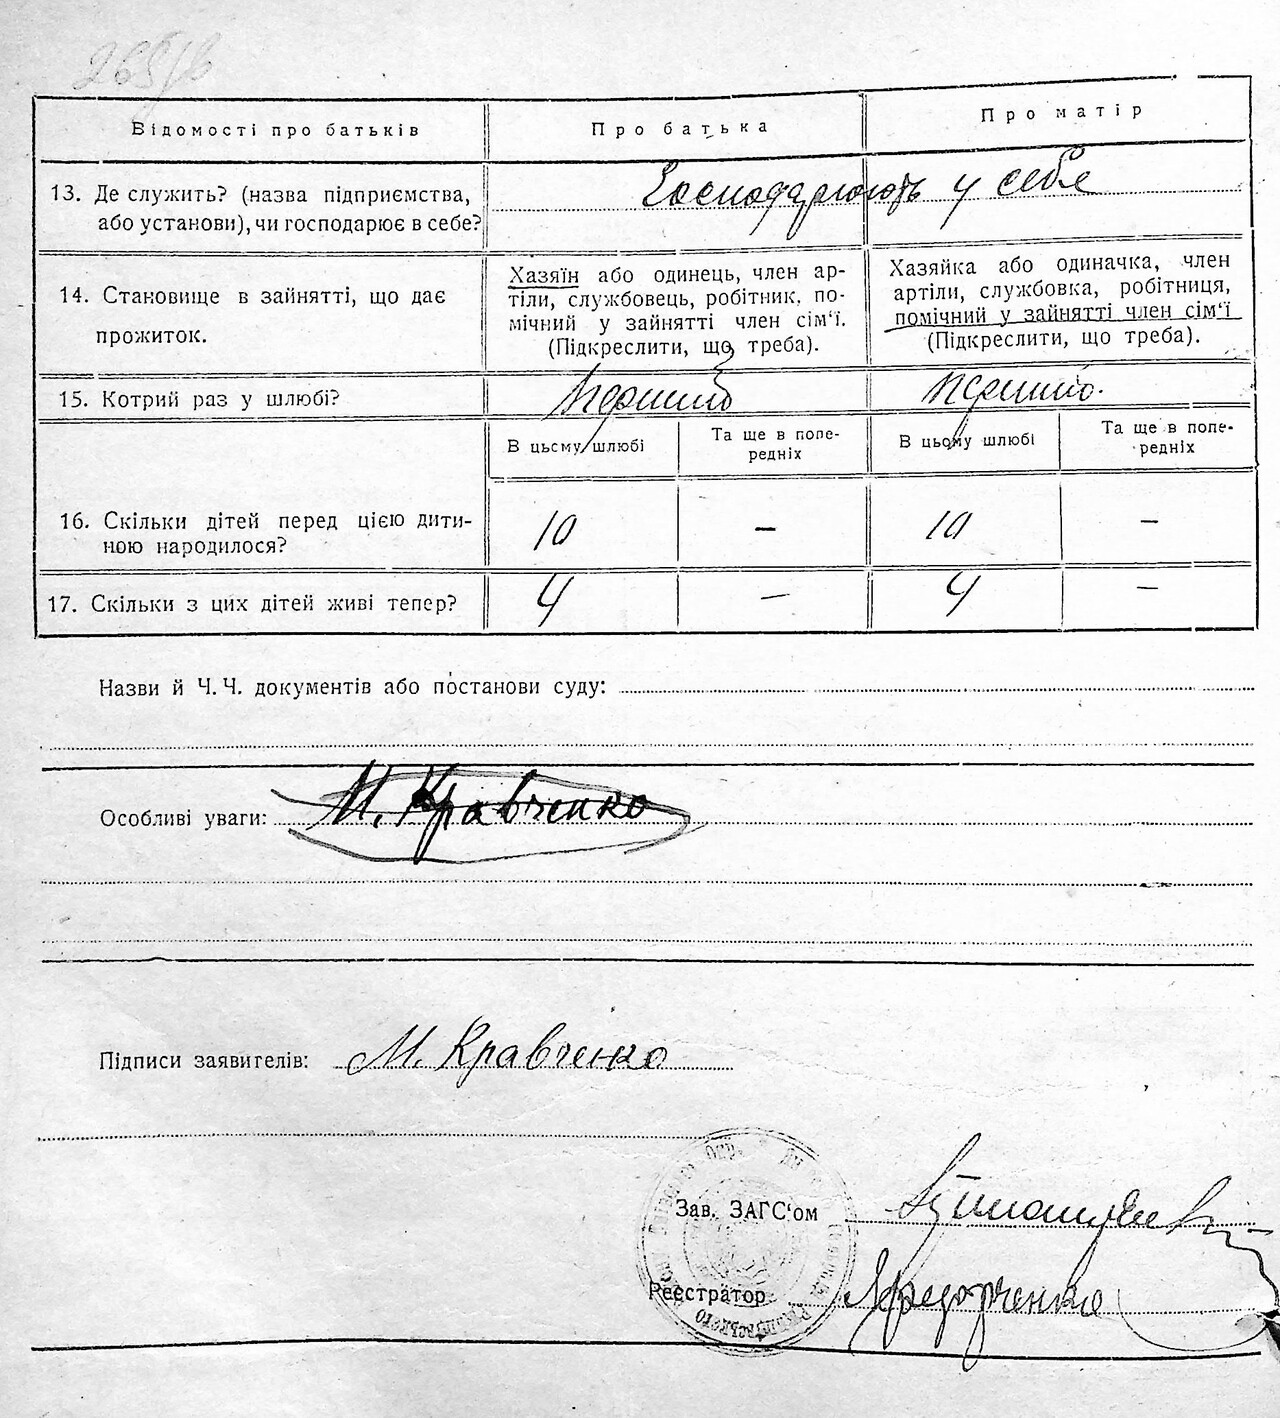 Відомості про батьків
Про батька
Про матір
13. Де служить? (назва підприємства,
або установи), чи господарює в себе?
Господарюють у себе
14. Становище в зайнятті, що дає
прожиток.
Хазяїн або одинець, член ар-
тіли, службовець, робітник, по-
мічний у зайнятті член сім'ї.
(Підкреслити, що треба).
Хазяйка або одиначка, член
артіли, службовка, робітниця,
помічний у зайнятті член сім'ї
(Підкреслити, що треба).
15. Котрий раз у шлюбі?
В цьому шлюбі
Та ще в попе-
редніх
В цьому шлюбі
Та ще в попе-
редніх
16. Скільки дітей перед цією дити-
ною народилося?
10
–
10
–
17. Скільки з цих дітей живі тепер?
4
–
4
–
Назви й Ч.Ч. документів або постанови суду:
Особливі уваги: М. Кравченко
Підписи заявителів: М. Кравченко
Зав. ЗАГС'ом
Реєстратор